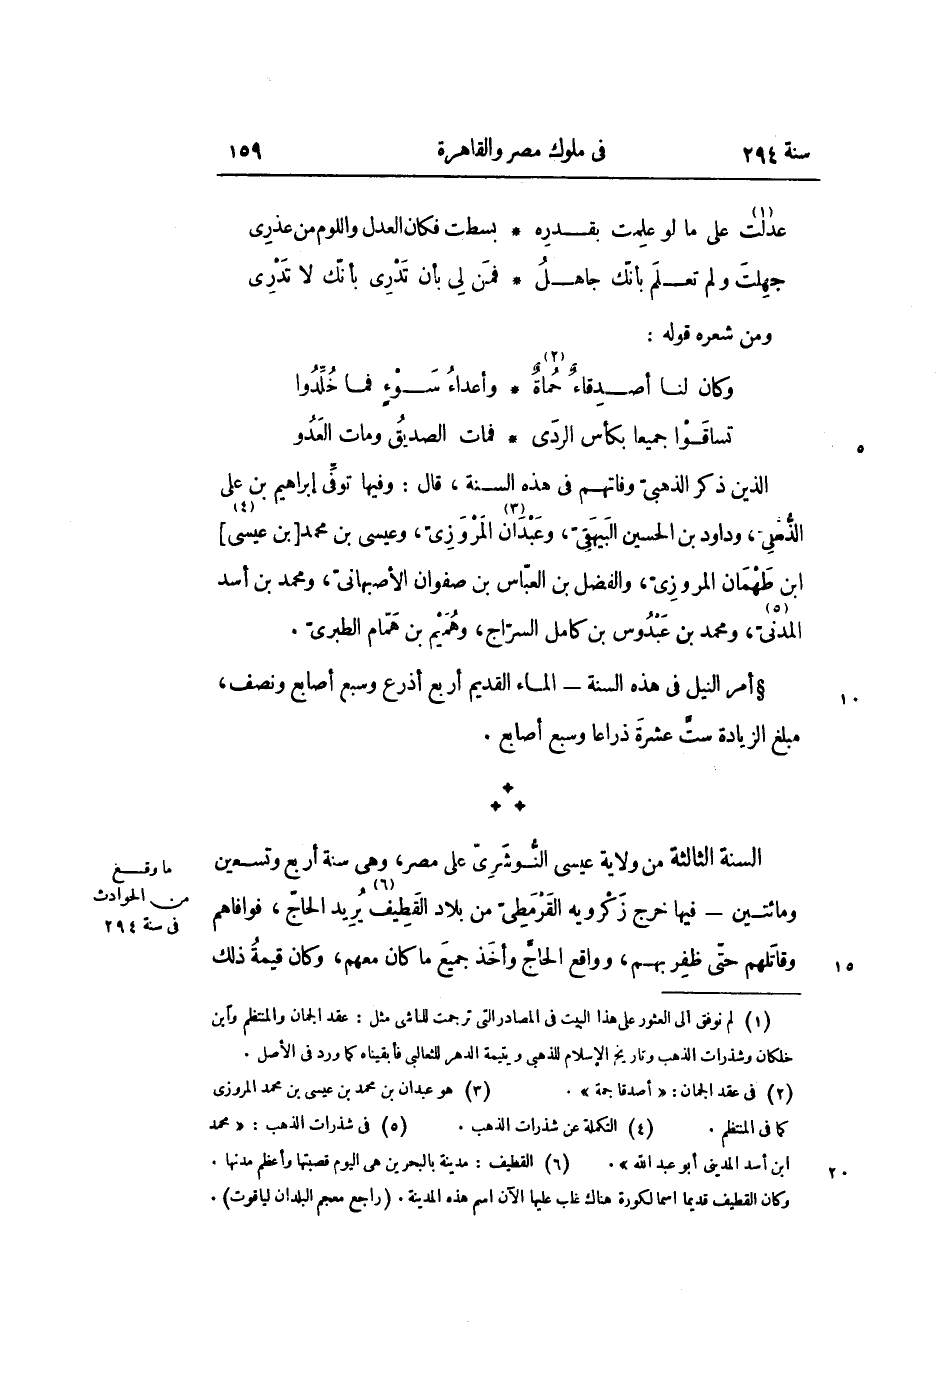 سنة ٢٩٤ فى ملوك مصر والقاهرة ١٥٩
(١)
عدلتَ على ما لو علمت بقــدره * بسطت فكان العدل واللوم من عذرى
جهِلتَ ولم تعــلَم بأنّك جاهــلٌ * فمَن لى بأن تَدْرِى بأنّك لا تَدْرِى
ومن شعره قوله :
(٢)
وكان لنــا أصــدِقاءٌ حُماةٌ * وأعداءُ سَــوْءٍ فمــا خُلِّدُوا
تساقَــوْا جميعا بكأس الردَى * فمات الصديقُ ومات العَدُو
٥
الذين ذكر الذهبىّ وفاتهــم فى هذه الســنة ، قال : وفيها توفّى إبراهيم بن على
(٣) (٤)
الذُّهْلِىّ، وداود بن الحسين البَيهَقِىّ، وعَبْدَان المَرْوَزِىّ، وعيسى بن محمد[بن عيسى]
ابن طَهْمَان المروزىّ، والفضل بن العبّاس بن صفوان الأصبهانىّ، ومحمد بن أسد
(٥)
المدنىّ، ومحمد بن عَبْدُوس بن كامل السرّاج، وهُمَيْم بن هَمّام الطبرىّ .
§ أمر النيل فى هذه السنة — المــاء القديم أربع أذرع وسبع أصابع ونصف،
١٠
مبلغ الزيادة ستَّ عشرَةَ ذراعا وسبع أصابع .
السنة الثالثة من ولاية عيسى النُّوشَرِىّ على مصر، وهى سنة أربع وتسعين
ما وقــع
من الحوادث
فى سنة ٢٩٤
(٦)
ومائتــين — فيها خرج زَكْرويه القَرْمَطِىّ من بلاد القَطِيف يُريد الحاجّ ، فوافاهم
وقاتَلهم حتّى ظفِر بهــم، وواقع الحاجَّ وأخَذ جميعَ ما كان معهم، وكان قيمةُ ذلك
١٥
(١) لم نوفق الى العثور على هذا البيت فى المصادر التى ترجمت للناشى مثل : عقد الجمان والمنتظم وآبن
خلكان وشذرات الذهب وتاريخ الإسلام للذهبى ويتيمة الدهر للثعالبى فأبقيناه كما ورد فى الأصل .
(٢) فى عقد الجمان : « أصدقا جمة » . (٣) هو عبدان بن محمد بن عيسى بن محمد المروزى
كما فى المنتظم . (٤) التكملة عن شذرات الذهب . (٥) فى شذرات الذهب : « محمد
ابن أسد المدينى أبو عبد الله » . (٦) القطيف : مدينة بالبحرين هى اليوم قصبتها وأعظم مدنها .
٢٠
وكان القطيف قديما اسما لكورة هناك غلب عليها الآن اسم هذه المدينة . (راجع معجم البلدان لياقوت) .